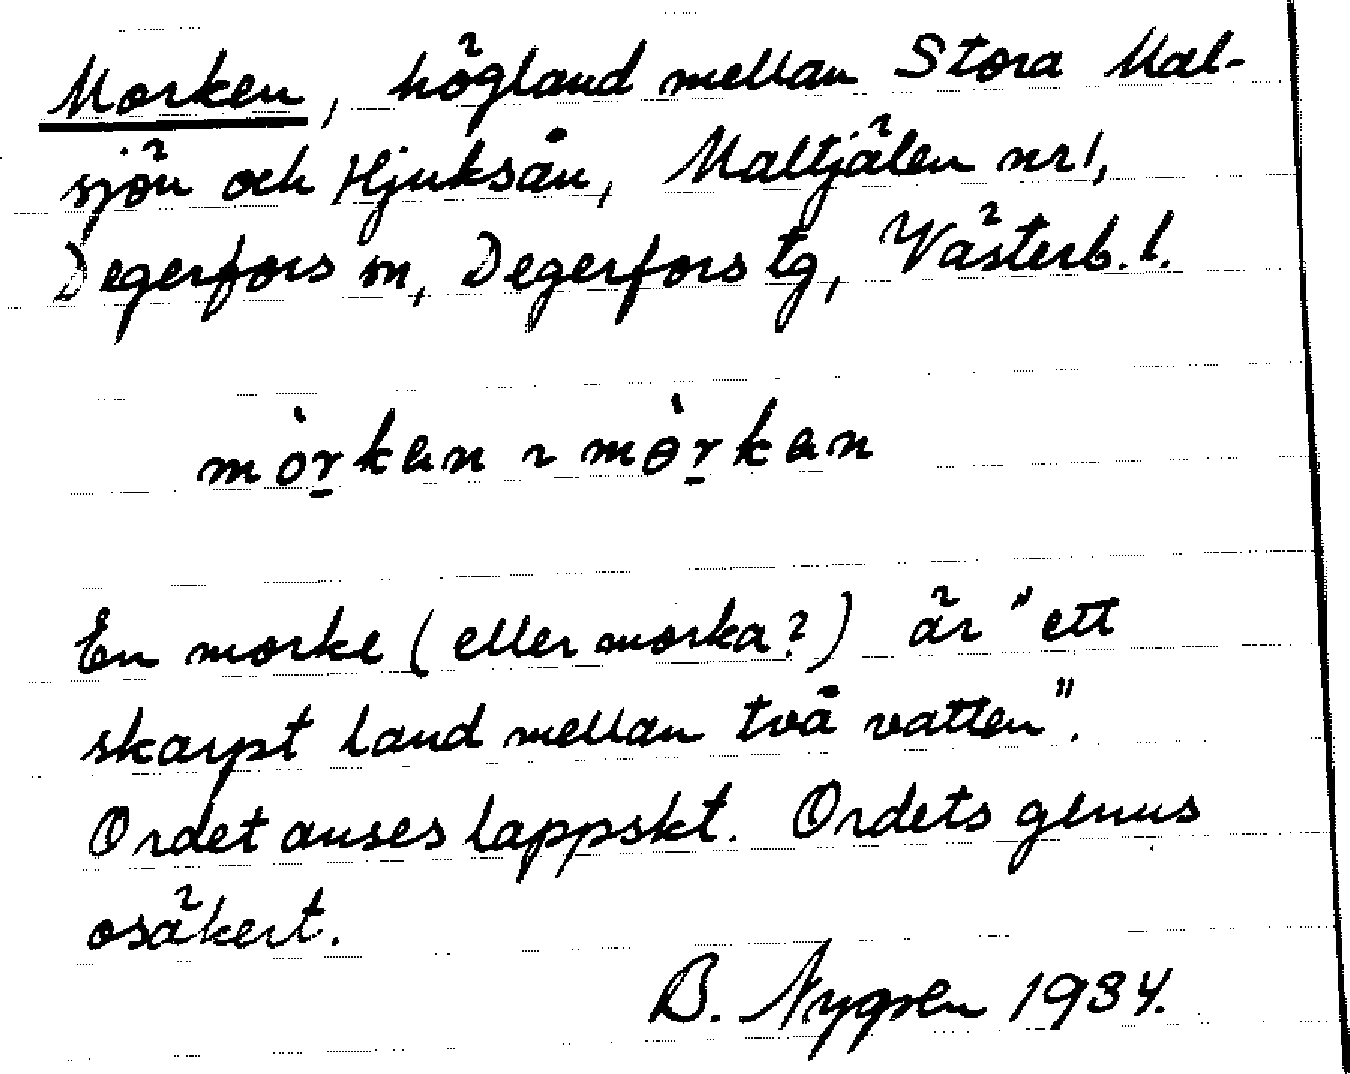 Morken, högland mellan Stora Mal-
sjön och Hjuksån, Maltjälen nr 1,
Degerfors sn, Degerfors tg, Västerb. l.
mòr̠kan ~ mɵ̀r̠kan
En morke (eller morka?) är "ett
skarpt land mellan två vatten".
Ordet anses lappskt. Ordets genus
osäkert.
B. Nygren 1934.